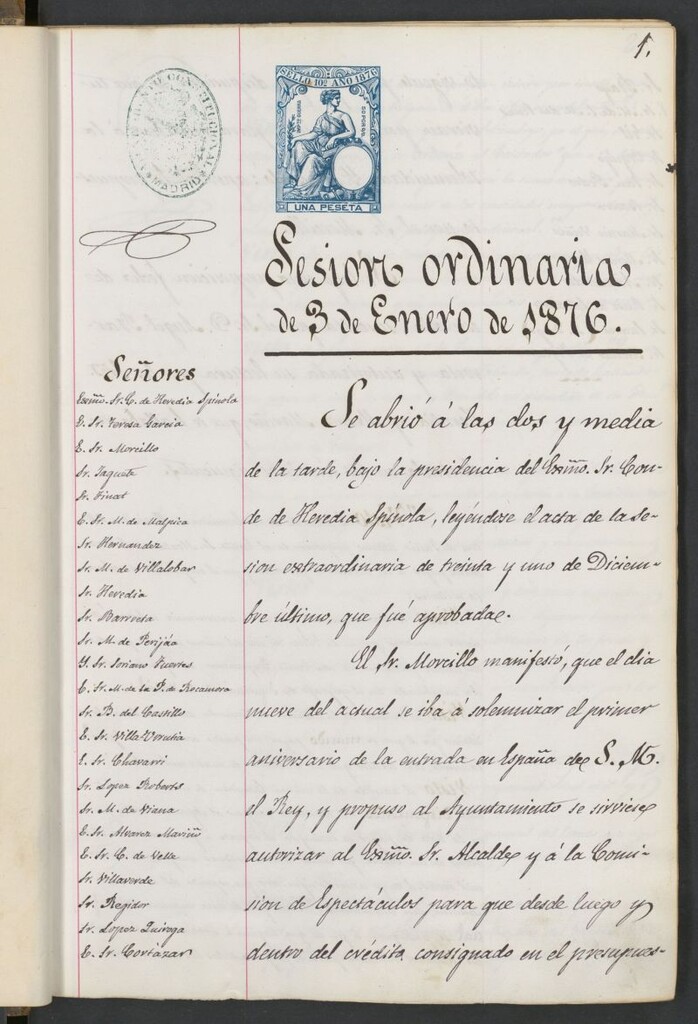 1.
AYUNTAMIENTO CONSTITUCIONAL
MADRID
SELLO 10º AÑO 1876
UNA PESETA
Sesion ordinaria
de 3 de Enero de 1876.
Señores
Exmo. Sr. C. de Heredia Spinola
Sr. Teresa Garcia
E. Sr. Morcillo
Sr. Jaquete
Sr. Finat
E. Sr. M. de Malpica
Sr. Hernandez
Sr. M. de Villalobar
Sr. Heredia
Sr. Barrueta
Sr. M. de Perijáa
Y. Sr. Soriano Fuertes
E. Sr. M. de la P. de Rocamora
Sr. B. del Castillo
E. Sr. Villa-Verutia
E. Sr. Chavarri
Sr. Lopez Roberts
Sr. M. de Viana
E. Sr. Alvarez Mariño
E. Sr. C. de Velle
Sr. Villaverde
Sr. Regidor
Sr. Lopez Quiroga
E. Sr. Cortazar
Se abrió á las dos y media
de la tarde, bajo la presidencia del Exmo. Sr. Con-
de de Heredia Spinola, leyéndose el acta de la se-
sion extraordinaria de treinta y uno de Diciem-
bre último, que fué aprobada.
El Sr. Morcillo manifestó, que el dia
nueve del actual se iba á solemnizar el primer
aniversario de la entrada en España de S. M.
el Rey, y propuso al Ayuntamiento se sirviese
autorizar al Exmo. Sr. Alcalde y á la Comi-
sion de Espectáculos para que desde luego y
dentro del crédito consignado en el presupues-